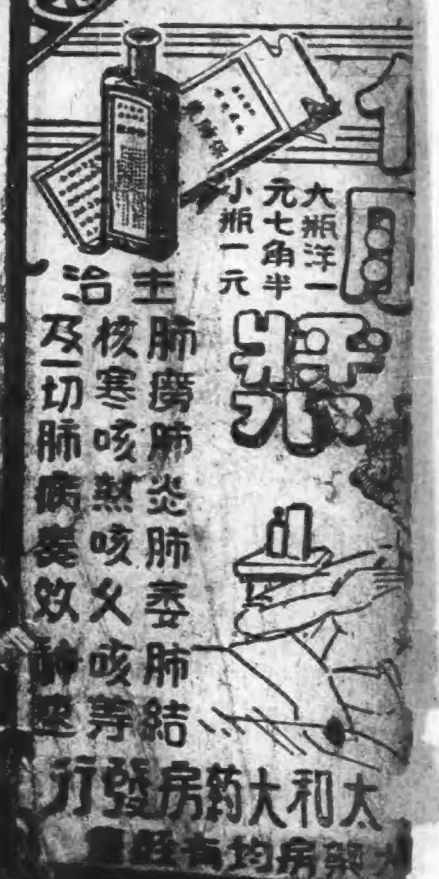 大瓶洋一
元七角半
小瓶一元
漿
主治
肺癆肺炎肺萎肺結
核寒咳熱咳久咳等
及一切肺病奏效神
太和大葯房發行
大藥房均有經售